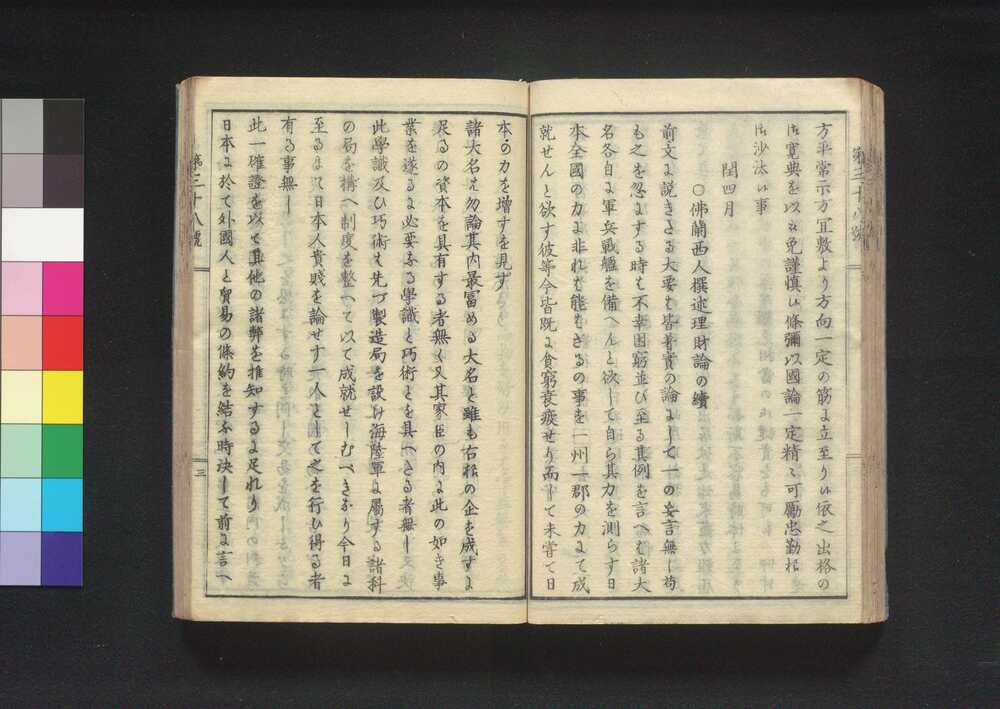 方平常示方宜敷より方向一定の筋に立至り候依之出格の
御寛典を以被免謹慎候條彌以國論一定精〻可勵忠勤様
御沙汰候事
閏四月
○佛蘭西人撰述理財論の續
前文に説きたる大要ハ皆着實の論にして一の妄言無し苟
も之を忽にする時ハ不幸困窮並び至る其例を言へバ諸大
名各自に軍兵戰艦を備へんと欲して自ら其力を測らす日
本全國の力に非れバ能ハざるの事を一州一郡の力にて成
就せんと欲す彼等今皆既に貧窮衰疲せり而して未嘗て日
本の力を増すを見ず
諸大名ハ勿論其内最冨める大名と雖も右様の企を成すに
足るの資本を具有する者無く又其家臣の内に此の如き事
業を遂るに必要なる學識と巧術とを具へたる者無し
此學識及ひ巧術ハ先づ製造局を設け海陸軍に屬する諸科
の局を構へ制度を整へて以て成就せしむべきなり今日に
至るまて日本人貴賤を論せす一人として之を行ひ得る者
有る事無し
此一確證を以て其他の諸弊を推知するに足れり
日本に於て外國人と貿易の條約を結ふ時決して前に言へ
第三十八號
三
第三十八號